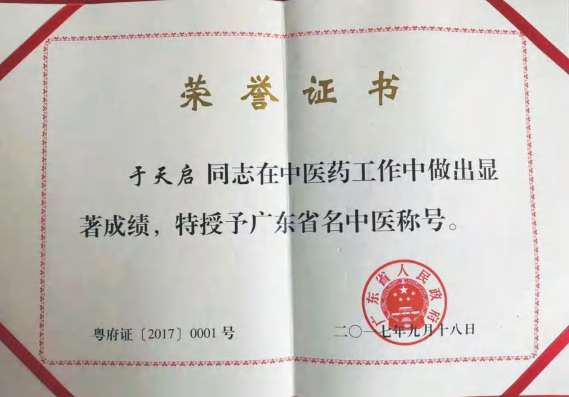 荣誉证书
于天启 同志在中医药工作中做出显
著成绩，特授予广东省名中医称号。
广东省人民政府
粤府证〔2017〕0001号
二〇一七年九月十八日